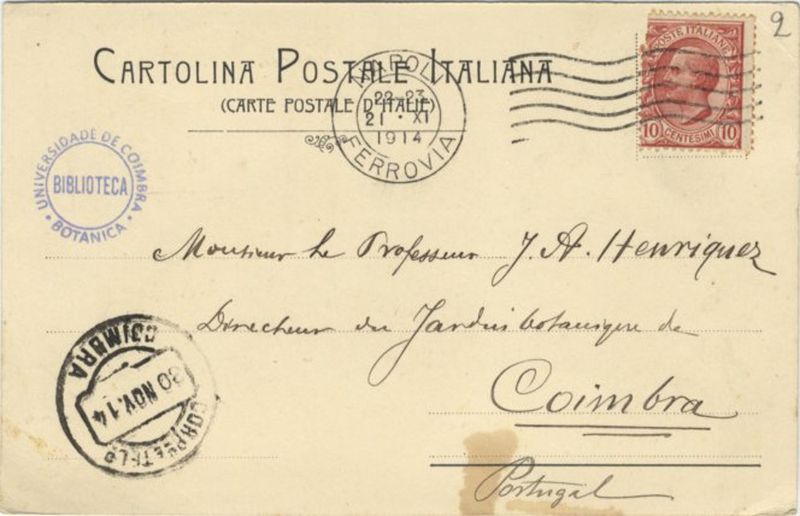 2
CARTOLINA POSTALE ITALIANA
(CARTE POSTALE D'ITALIE)
NAPOLI
22-23
21 · XI
1914
FERROVIA
POSTE ITALIANE
10 CENTESIMI 10
UNIVERSIDADE DE COIMBRA
BIBLIOTECA
BOTANICA
Monsieur le Professeur J. A. Henriquez
Directeur du Jardin botanique de
Coimbra
Portugal
COIMBRA
30 NOV. 14